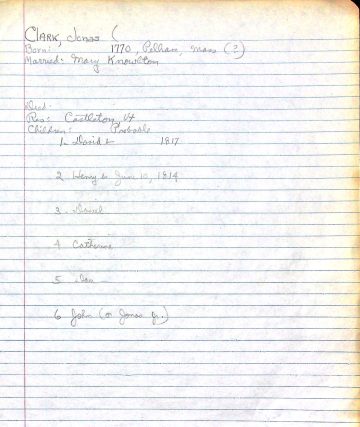 CLARK, Jonas (
Born: 1770, Pelham, Mass (?)
Married: Mary Knowlton
Died.
Res: Castleton, Vt
Children: Probable
1. David b 1817
2 Henry b June 10, 1814
3. Daniel
4 Catherine
5
6 John (or Jonas Jr.)